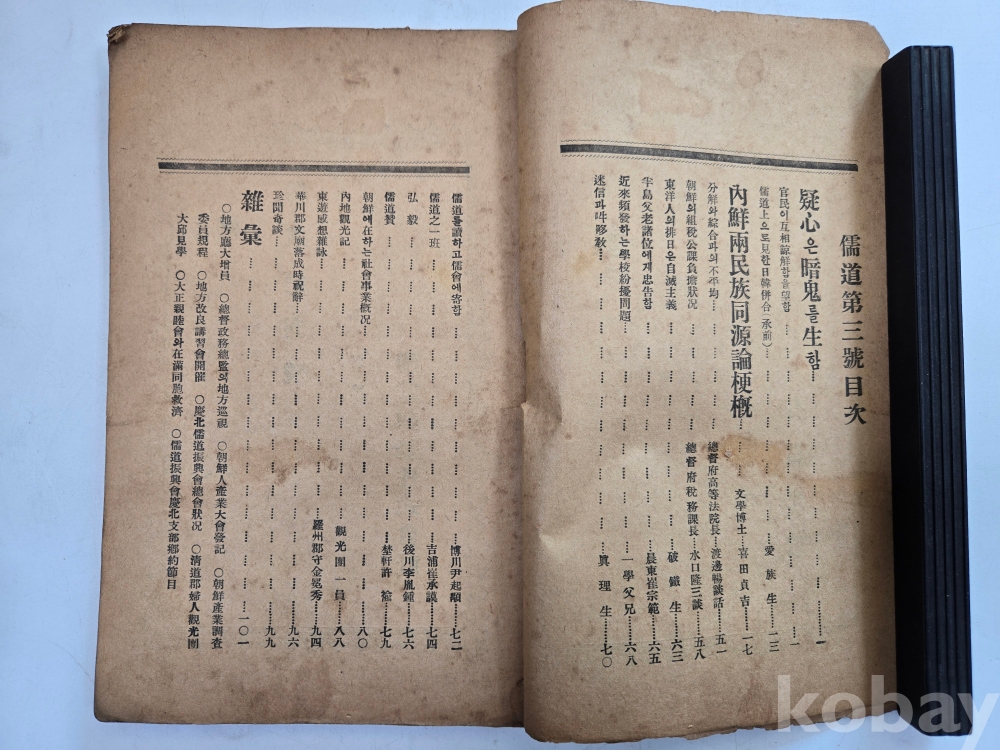 儒道第三號目次
疑心은暗鬼를生함 一
官民이互相諒解함을望함 一
儒道上으로見한日韓併合(承前) 愛族生 二三
內鮮兩民族同源論梗槪 文學博士 喜田貞吉 一七
分解와綜合과의不平均 總督府高等法院長 渡邊暢談話 五一
朝鮮의組稅公課負擔狀况 總督府稅務課長 水口隆三談 五八
東洋人의排日은自滅主義 破鐵生 六三
半島父老諸位에게忠告함 晨東崔宗範 六五
近來頻發하는學校紛擾問題 一學父兄 六八
迷信과 敎 眞理生 七〇
儒道를讀하고儒會에寄함 博川尹起 七二
儒道之一班 吉浦崔承謨 七四
弘毅 後川李胤鍾 七六
儒道贊 埜軒許 七九
朝鮮에在하는社會事業槪况 八〇
內地觀光記 觀光團一員 八八
東遊感想雜詠 羅州郡守金冕秀 九四
華川郡文廟落成時祝辭 九六
珍聞奇談 九九
雜彙 一〇一
○地方廳大增員 ○總督政務總監의地方巡視 ○朝鮮人產業大會發記 ○朝鮮產業調査
委員規程 ○地方改良講習會開催 ○慶北儒道振興會總會狀况 ○清道郡婦人觀光團
大邱見學 ○大正親睦會와在滿同胞救濟 ○儒道振興會慶北支部鄕約節目
kobay